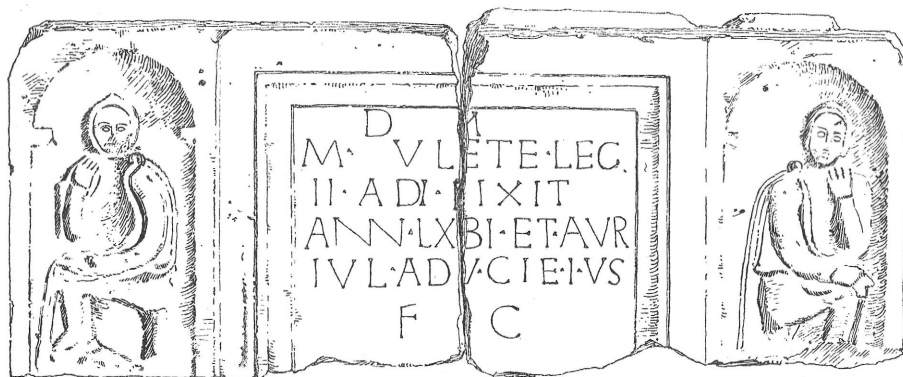 D M
M· VLETE·LEG
II·ADI· VIXIT
ANN·LXBI·ET·AVR
IVL·ADV·CIE·I·VS
F C